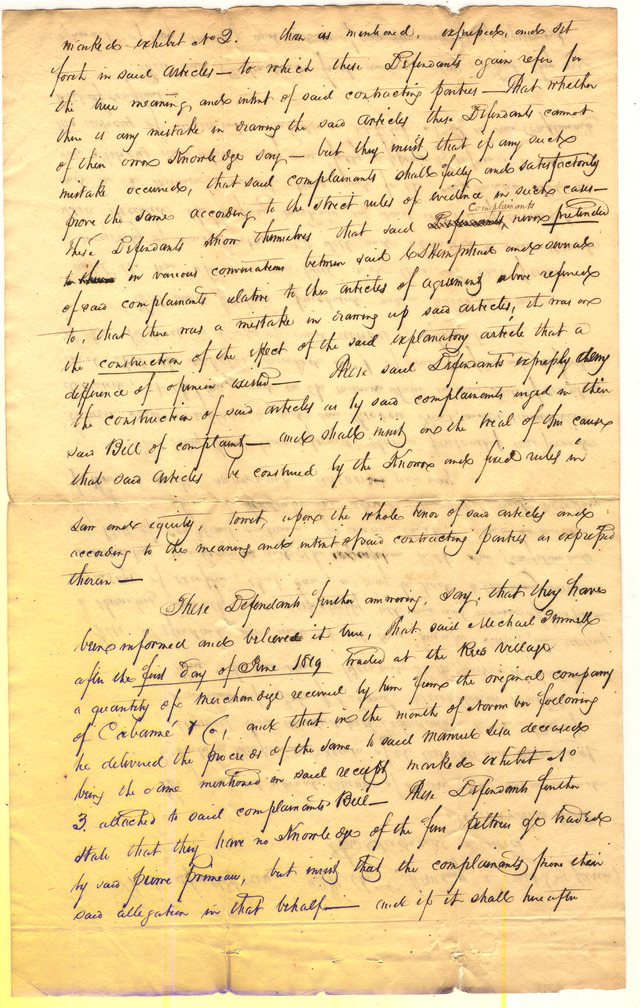 marked exhibit No 2. than is mentioned, expressed, and set
forth in said articles— to which these Defendants again refer for
the true meaning and intent of said contracting parties— That whether
there is any mistake in drawing the said articles these Defendants cannot
of their own Knowledge say— but they insist that if any such
mistake occurred, that said complainants shall fully and satisfactorily
prove the same according to the strict rules of evidence in such cases—
Complainants
these Defendants Know themselves that said Defendants, never pretended
to in various conversations between said Hempstead and several
of said complainants relative to the articles of agreement above referred
to, that there was a mistake in drawing up said articles, it was on
the construction of the effect of the said explanatory article that a
difference of opinion existed— These said Defendants expressly deny
the construction of said articles as by said complainants urged in their
said Bill of complaint— and shall insist on the trial of this cause
that said articles be construed by the Known and fixed rules in
Law and equity, towit, upon the whole tenor of said articles and
according to the meaning and intent of said contracting parties as expressed
therein—
These Defendants further answering, say, that they have
been informed and believe it true, that said Michael Immell
after the first day of June 1819 traded at the Ree village
a quantity of Merchandize received by him from the original company
of Cabanné & Co, and that in the month of November following
he delivered the proceeds of the same to said Manuel Lisa deceased
being the same mentioned in said receipt marked exhibit No
3. attached to said complainants Bill— These Defendants further
state that they have no Knowledge of the furs peltries &c traded
by said pierre primeau, but insist that the complainants prove their
said allegation in that behalf— and if it shall hereafter